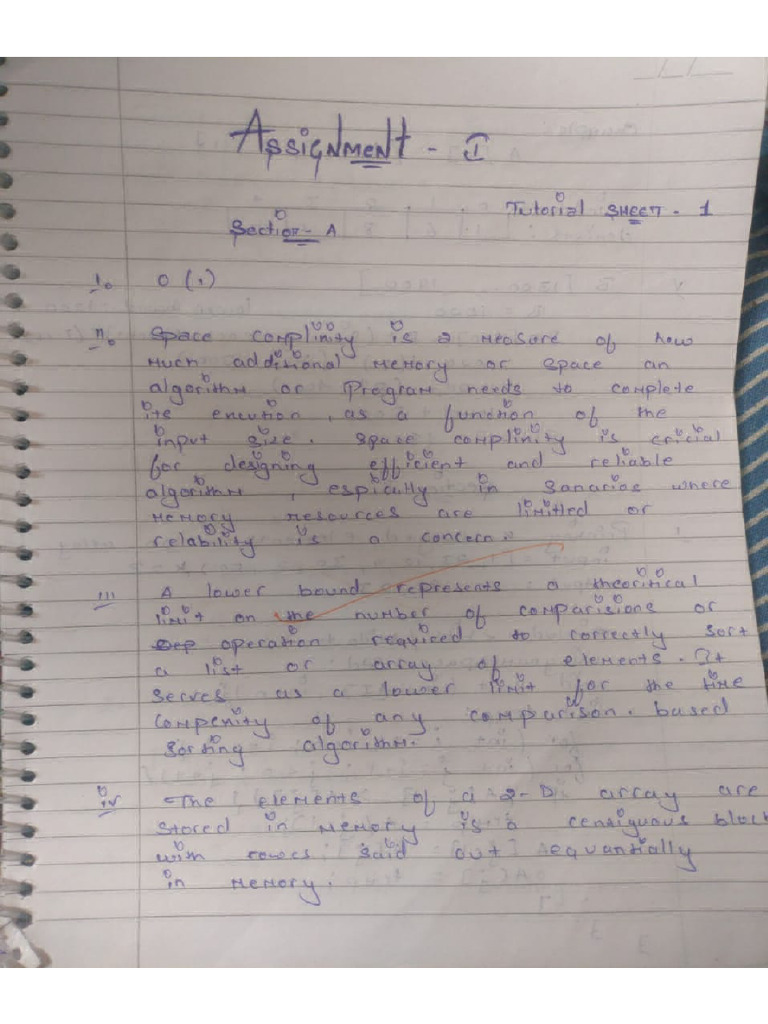 Assignment - I
Tutorial Sheet - 1
Section - A
1. O (1)
II. Space complinity is a measure of how
much additional memory or space an
algorithm or Program needs to complete
its encution, as a function of the
input size. Space complinity is cricial
for designing efficient and reliable
algorithm, espically in sanarios where
memory resources are limitled or
relability is a concern.
III A lower bound represents a theoritical
limit on the number of comparisions or
operation required to correctly sort
a list or array of elements. It
serves as a lower limit for the time
compenity of any comparison. based
sorting algorithm.
iv The elements of a 2-D array are
stored in memory is a centiguous block
with rowes said out equantially
in memory.